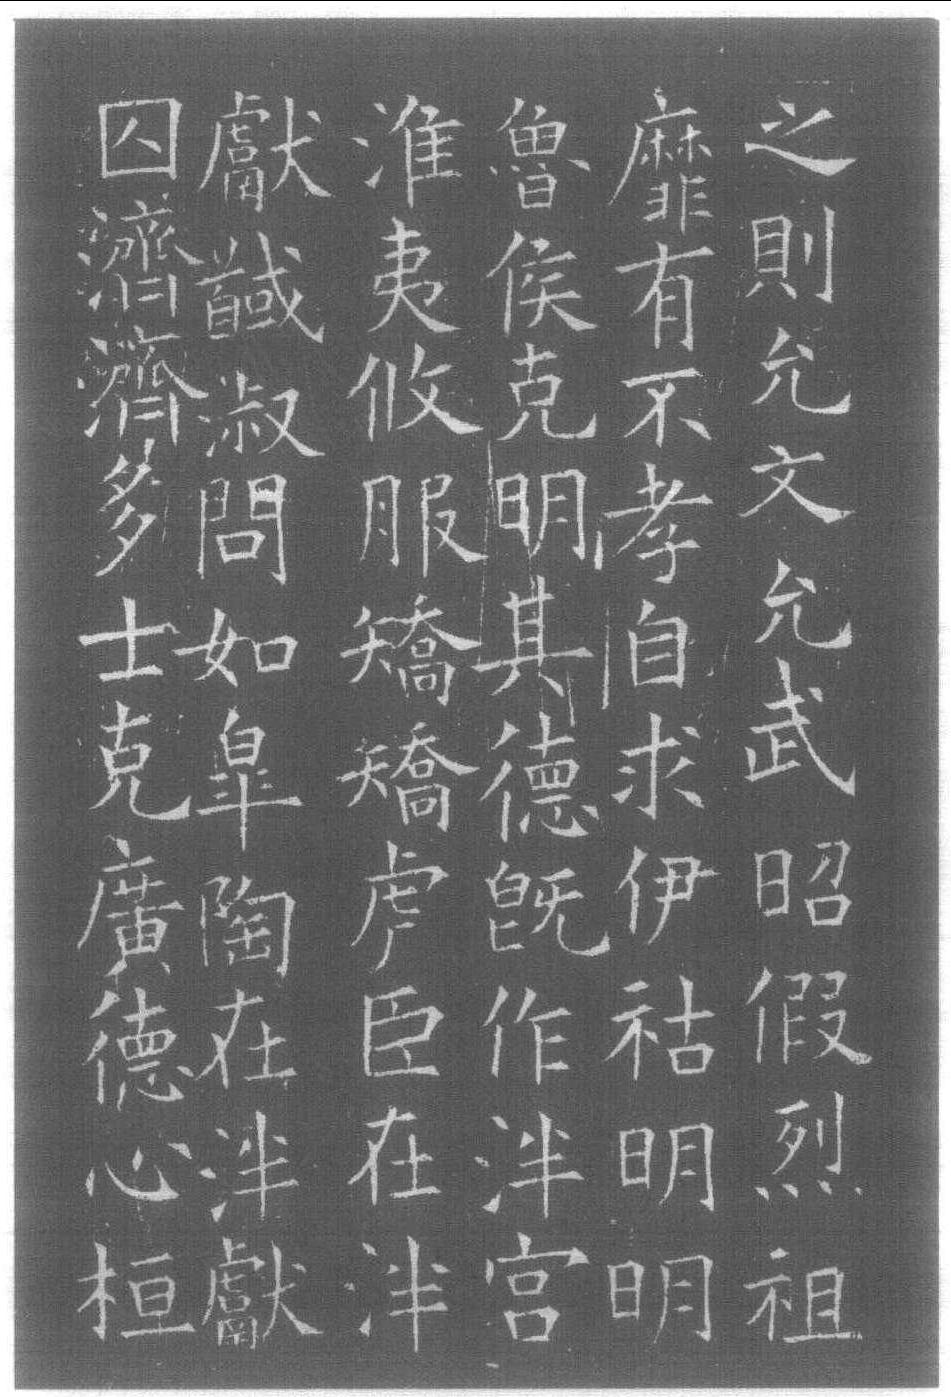 之則允文允武昭假烈祖
靡有不孝自求伊祜明明
魯侯克明其德既作泮宮
淮夷攸服矯矯虎臣在泮
獻馘淑問如皐陶在泮獻
囚濟濟多士克廣德心桓